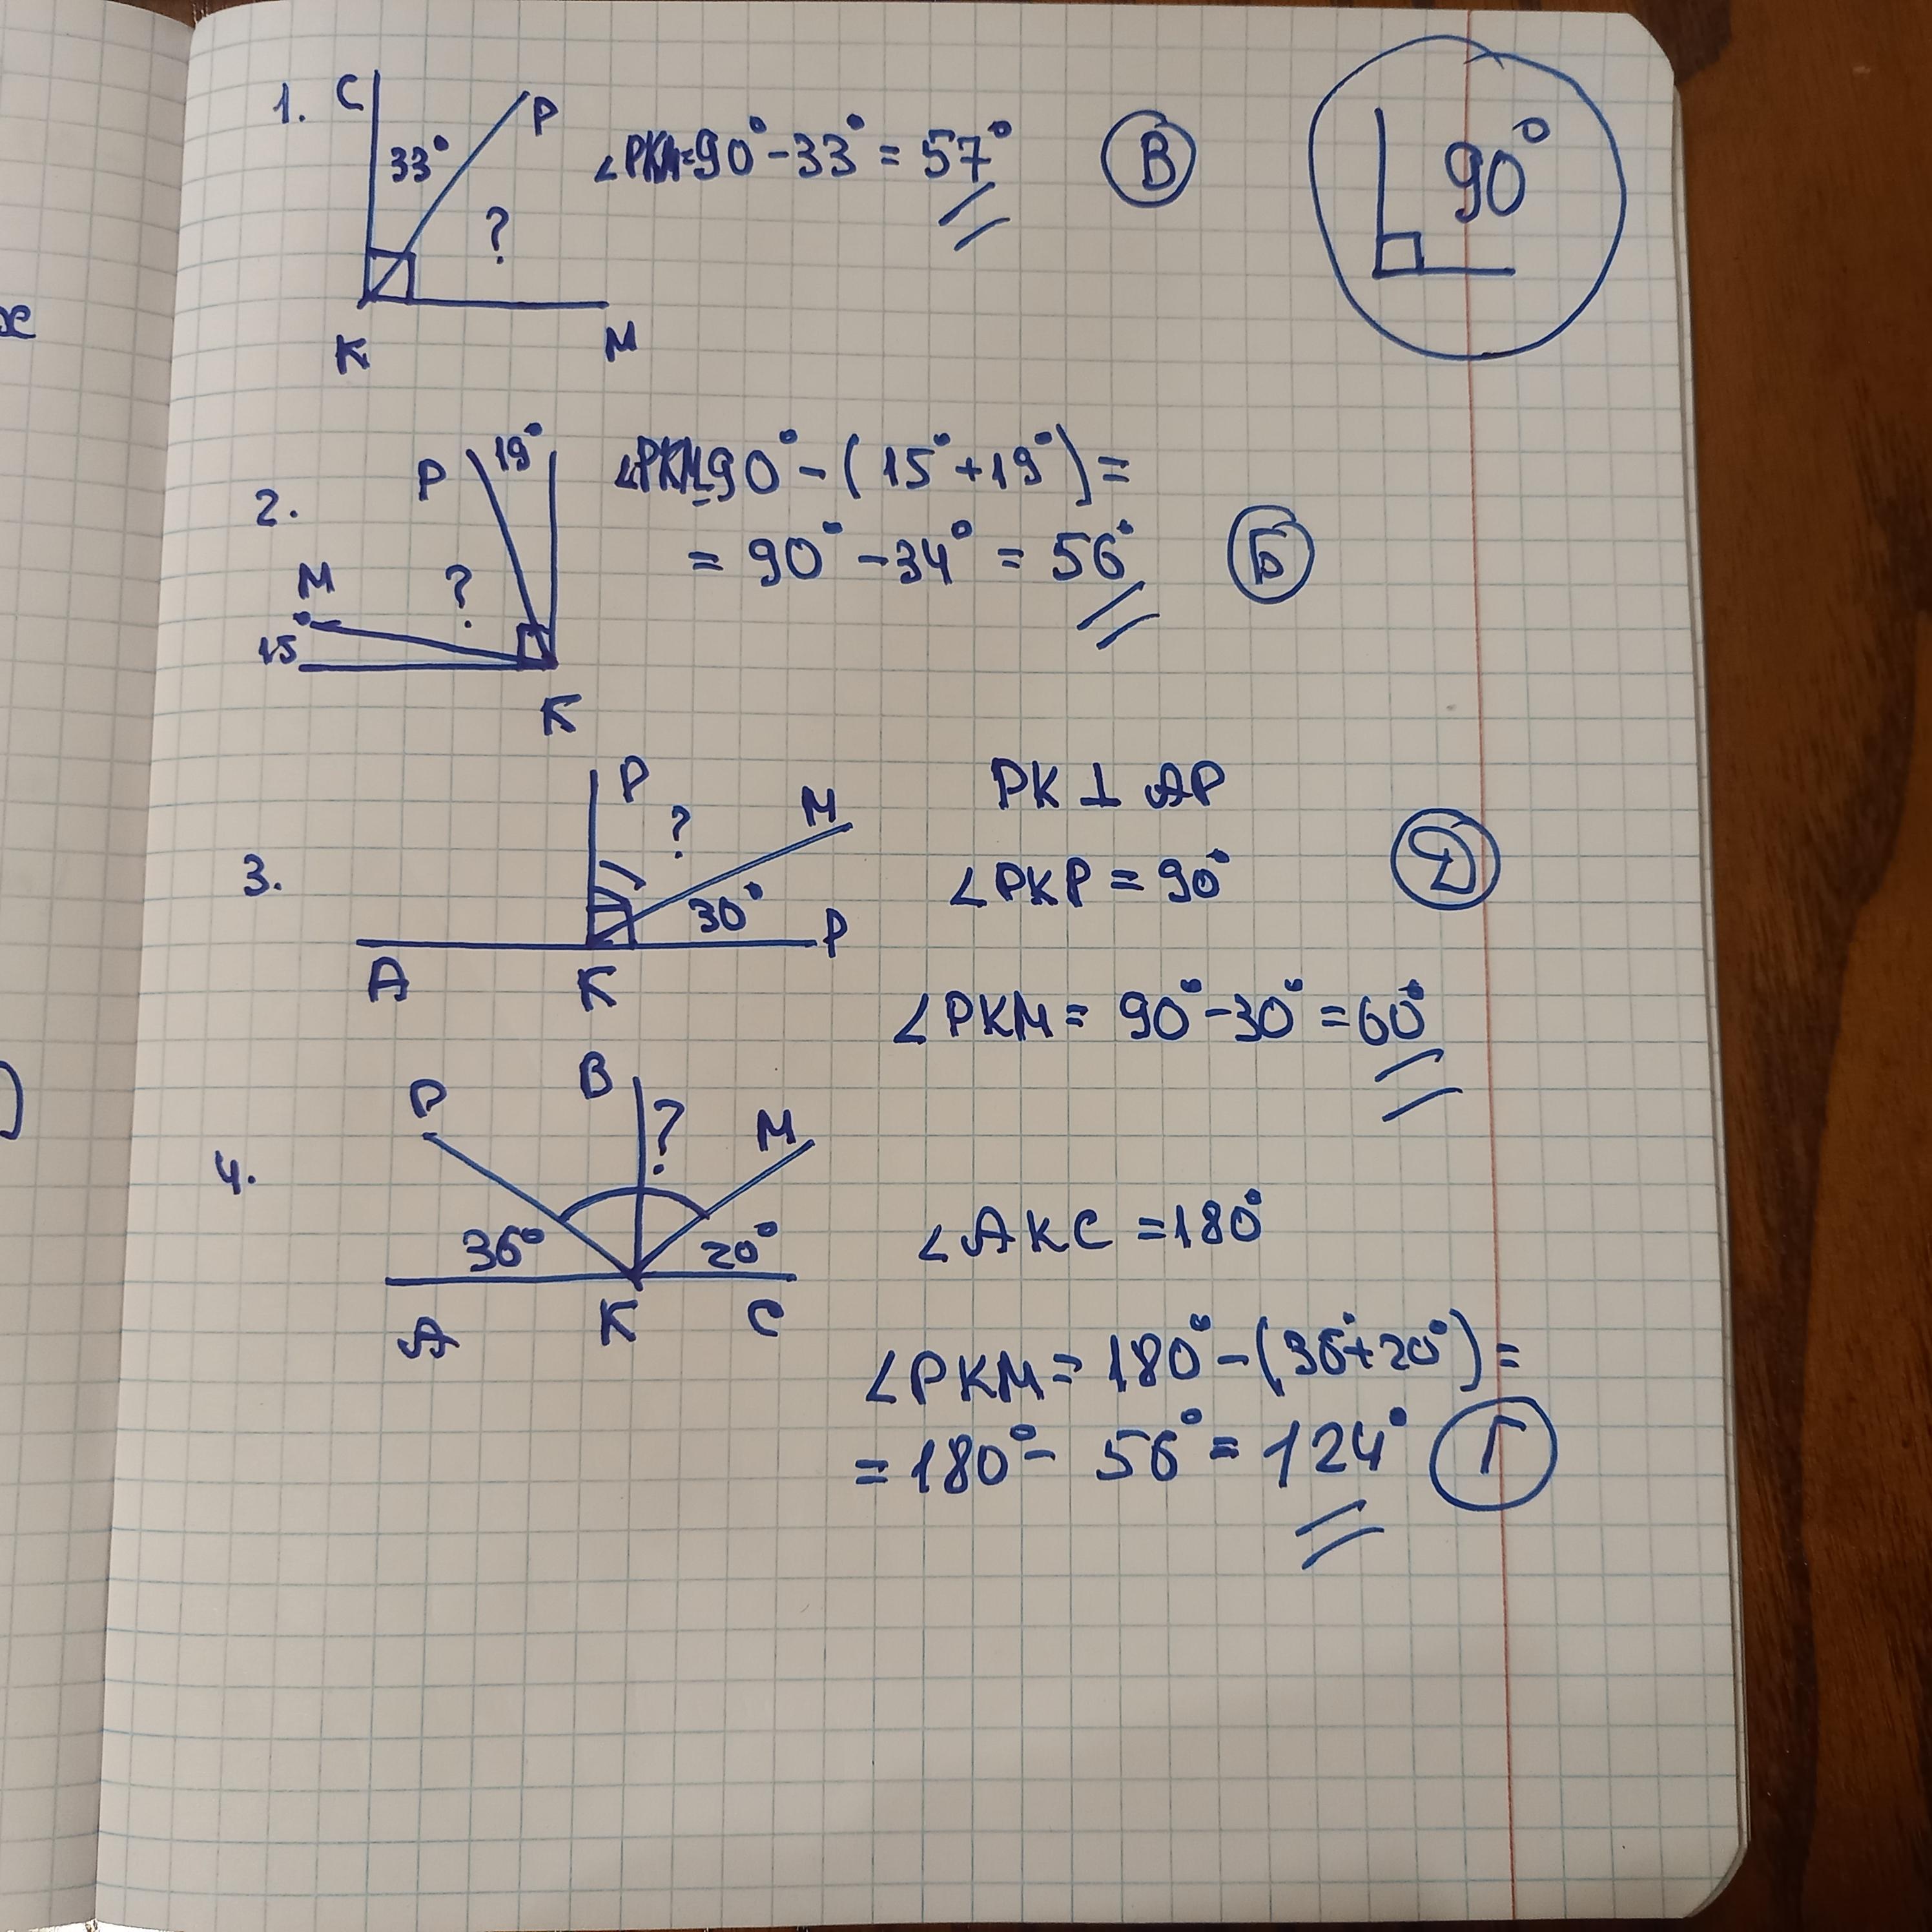 1. C P 33° ? K M
∠PKM=90°-33° = 57° В
90°
2. P 19° M ? 15° K
∠PKM=90°-(15°+19°)=
= 90°-34° = 56° Б
3. P ? M 30° A K P
PK ⊥ AP
∠PKP = 90° Д
∠PKM= 90°-30°=60°
4. P B ? M 36° 20° A K C
∠AKC =180°
∠PKM= 180°-(36°+20°)=
=180°- 56°= 124° Г